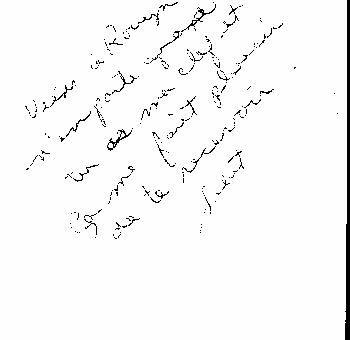 Viens à Rouyn
n'importe
tu as ma clef et
Ça me fait plaisir
de te recevoir
Salut